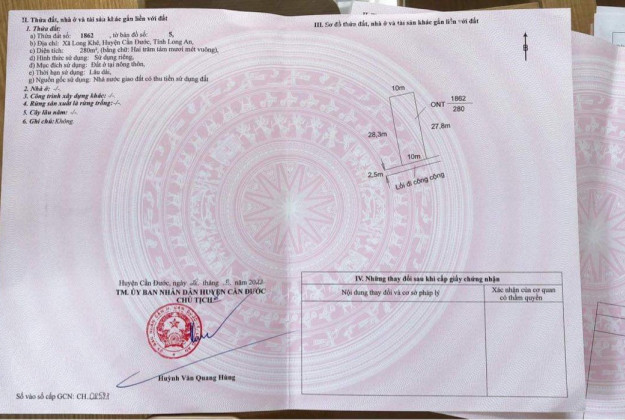 II. Thửa đất, nhà ở và tài sản khác gắn liền với đất
1. Thửa đất:
a) Thửa đất số: 1862 , tờ bản đồ số: 5,
b) Địa chỉ: Xã Long Khê, Huyện Cần Đước, Tỉnh Long An,
c) Diện tích: 280m², (bằng chữ: Hai trăm tám mươi mét vuông),
d) Hình thức sử dụng: Sử dụng riêng,
đ) Mục đích sử dụng: Đất ở tại nông thôn,
e) Thời hạn sử dụng: Lâu dài,
g) Nguồn gốc sử dụng: Nhà nước giao đất có thu tiền sử dụng đất
2. Nhà ở: -/-.
3. Công trình xây dựng khác: -/-.
4. Rừng sản xuất là rừng trồng: -/-.
5. Cây lâu năm: -/-
6. Ghi chú: Không.
Huyện Cần Đước, ngày tháng năm 2022
TM. ỦY BAN NHÂN DÂN HUYỆN CẦN ĐƯỚC
CHỦ TỊCH
Huỳnh Văn Quang Hùng
Số vào sổ cấp GCN: CH.
III. Sơ đồ thửa đất, nhà ở và tài sản khác gắn liền với đất
B
10m
ONT 1862
280
28,3m
27,8m
10m
2,5m
Lối đi công cộng
IV. Những thay đổi sau khi cấp giấy chứng nhận
Nội dung thay đổi và cơ sở pháp lý
Xác nhận của cơ quan
có thẩm quyền